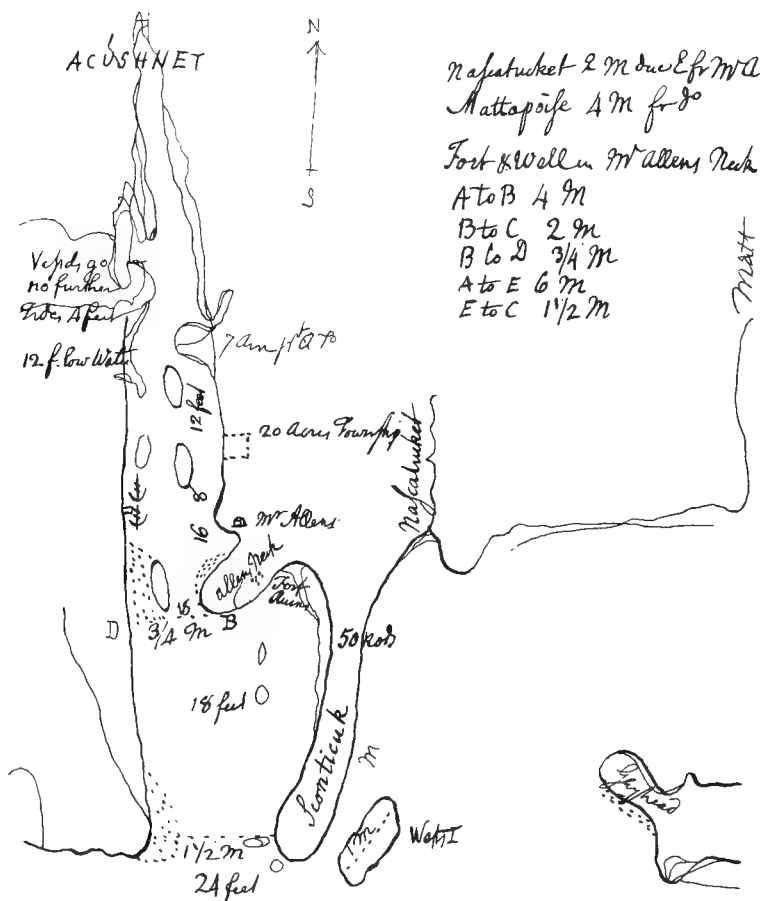 A
ACUSHNET
N
S
Nascatucket 2 M due E fr Mr A
Mattapoise 4 M fr Do
Fort & Well in Mr Allens Neck
A to B 4 M
B to C 2 M
B to D 3/4 M
A to E 6 M
E to C 1 1/2 M
Matt
Vessels go
no further
Tides 4 feet
12 f. low Water
12 feet
20 Acres Township
Nascatucket
8
16
Mr Allens
allens Neck
Fort
Ruins
18
B
D
3/4 M
50 Rods
18 feet
Sconticuk
M
Gayhead
m
West I
1 1/2 M
24 feet